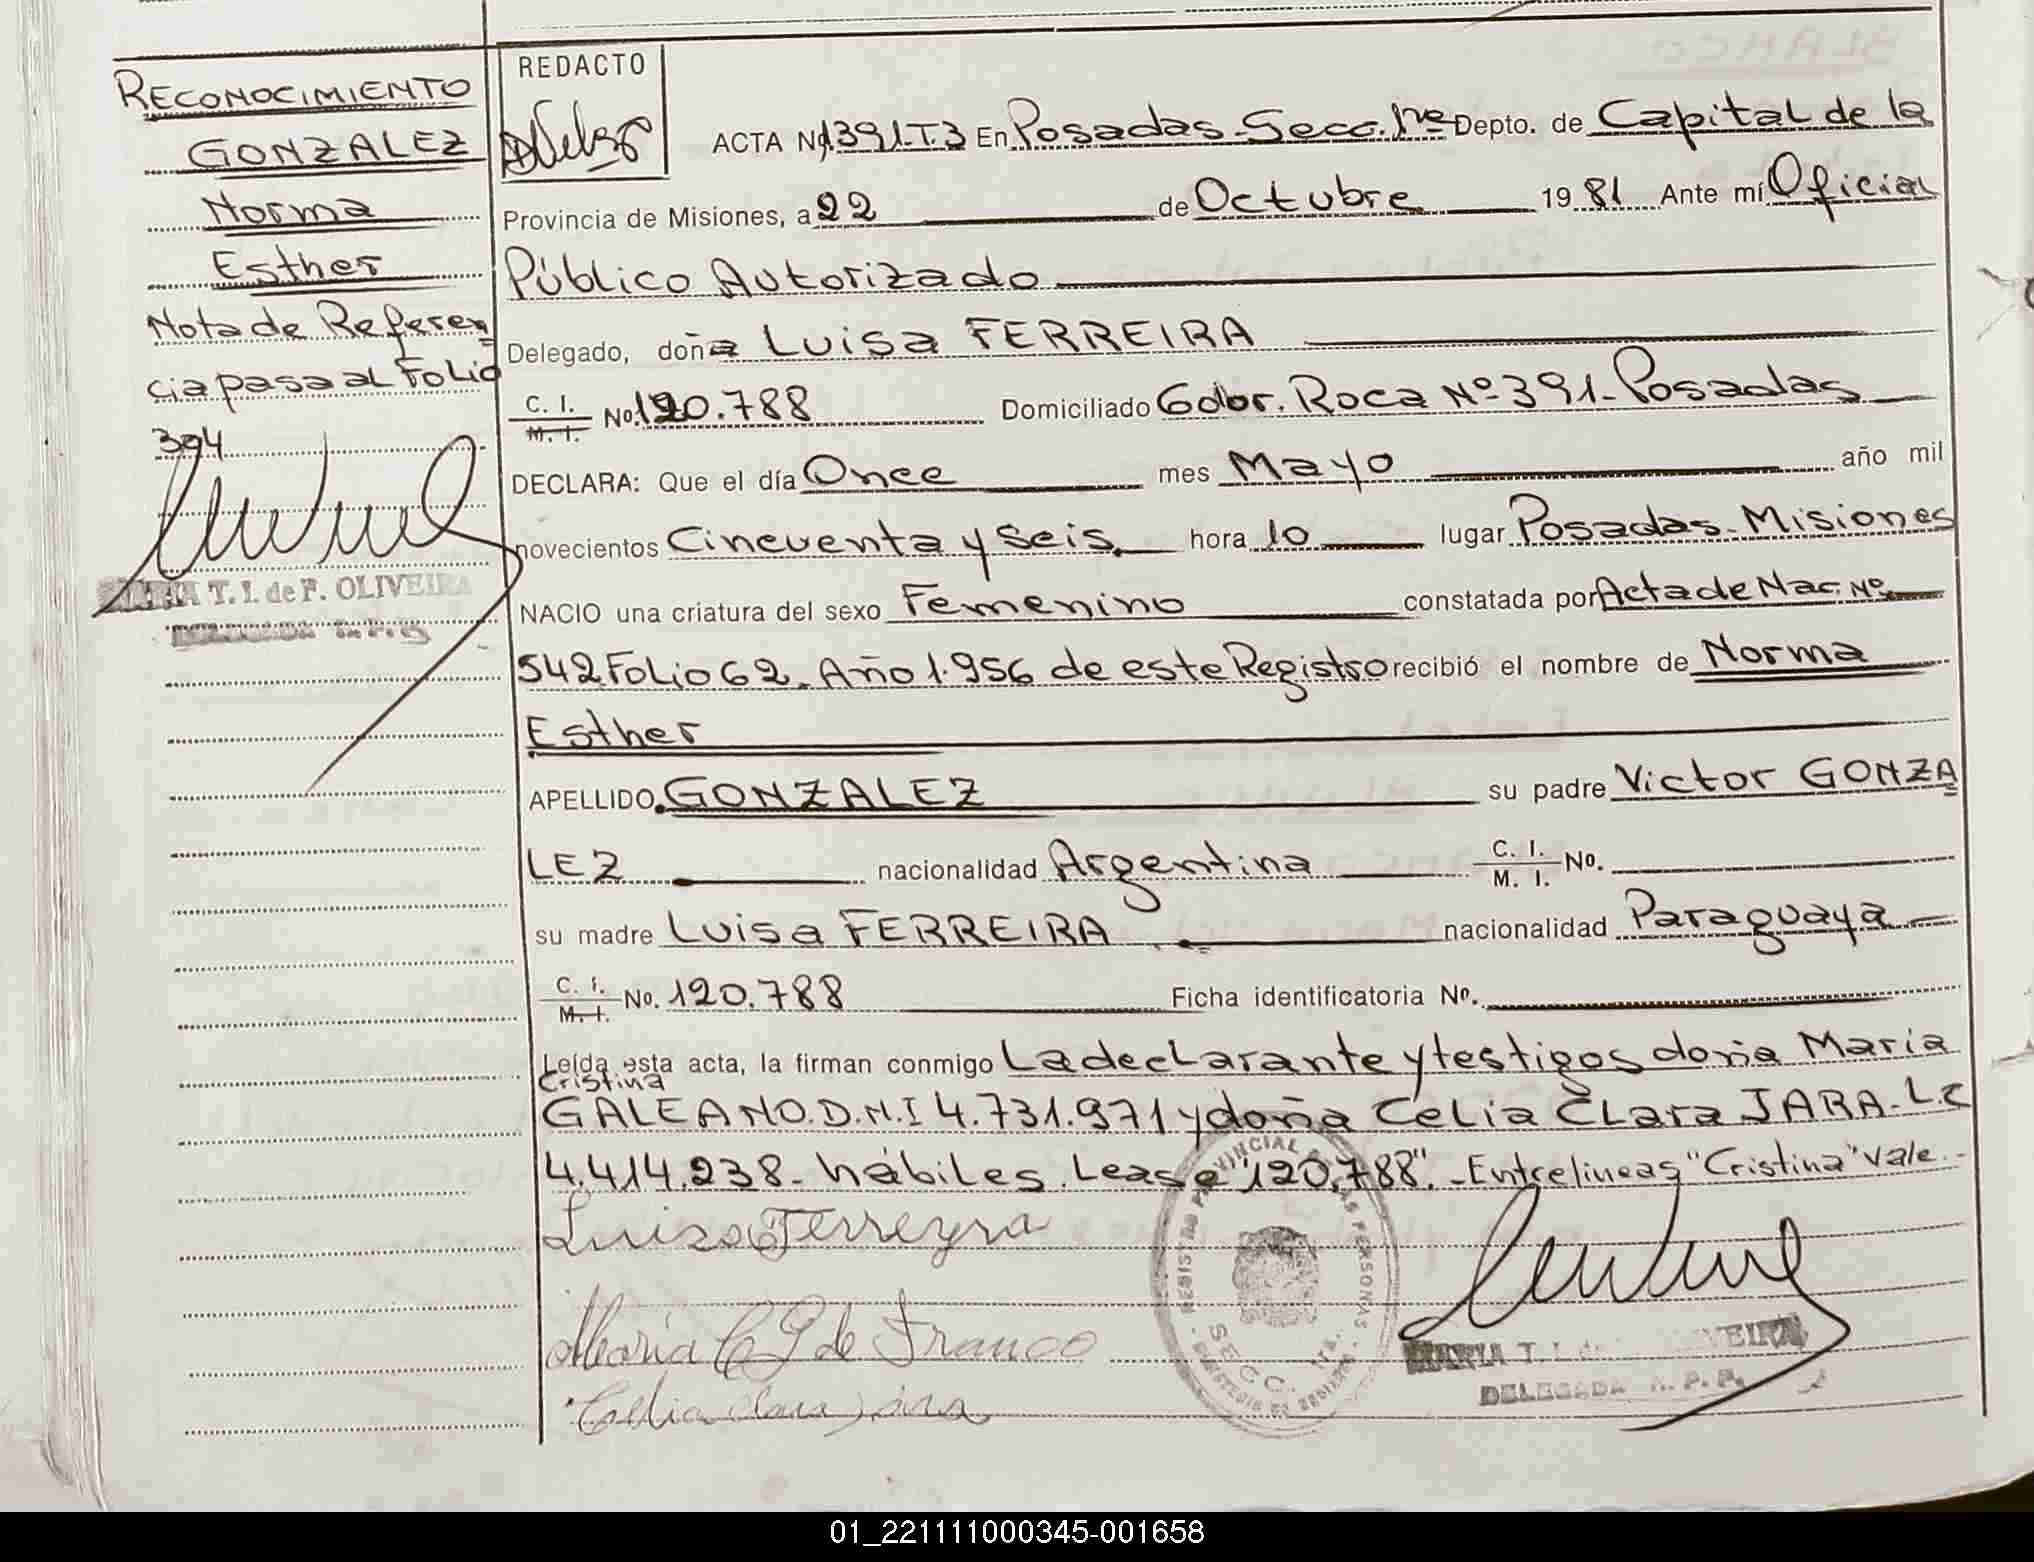 RECONOCIMIENTO
GONZALEZ
Norma
Esther
Nota de Referen
cia pasa al Folio
394
MARIA T. I. de F. OLIVEIRA
DELEGADA
REDACTO
ACTA Nº 1391-T.3 En Posadas-Secc. 1ra Depto. de Capital de la
Provincia de Misiones, a 22 de Octubre 19 81 Ante mí Oficial
Público Autorizado
Delegado, doña Luisa FERREIRA
C. I. M. I. No. 120.788 Domiciliado Gdor. Roca Nº 391-Posadas
DECLARA: Que el día Once mes Mayo año mil
novecientos Cincuenta y seis. hora 10 lugar Posadas-Misiones
NACIO una criatura del sexo Femenino constatada por Acta de Nac. Nº
542 Folio 62. Año 1.956 de este Registro recibió el nombre de Norma
Esther
APELLIDO GONZALEZ su padre Victor GONZA
LEZ nacionalidad Argentina C. I. M. I. No.
su madre Luisa FERREIRA nacionalidad Paraguaya
C. I. M. I. No. 120.788 Ficha identificatoria No.
Leída esta acta, la firman conmigo La declarante y testigos doña María
Cristina
GALEANO.D.N.I 4.731.971 y doña Celia Clara JARA-L.C
4.414.238-hábiles. Lease "120.788".-Entrelineas "Cristina" Vale.-
Luisa Ferreyra
Maria C G de Franco
Celia Clara Jara
REGISTRO PROVINCIAL DE LAS PERSONAS
SECC. 1ra.
MARIA T. I. de OLIVEIRA
DELEGADA R. P. P.
01_221111000345-001658